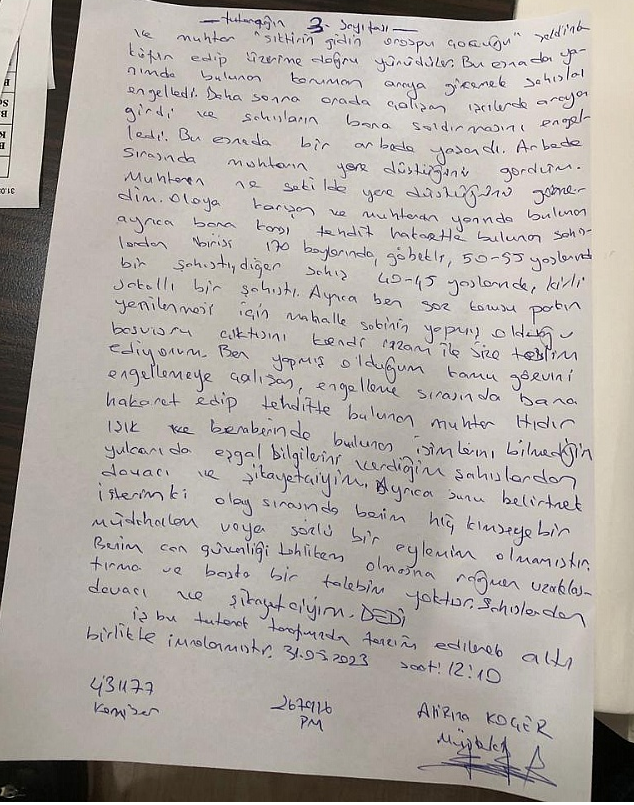 — tutanağın 3. sayfası —
ve muhtar "siktirin gidin orospu çocuğu" şeklinde
küfür edip üzerime doğru yürüdüler. Bu esnada ya-
nımda bulunan korumam araya girerek şahısları
engelledi. Daha sonra orada çalışan işçilerde araya
girdi ve şahısların bana saldırmasını engel-
ledi. Bu esnada bir arbede yaşandı. Arbede
sırasında muhtarın yere düştüğünü gördüm.
Muhtarın ne şekilde yere düştüğünü görme-
dim. Olaya karışan ve muhtarın yanında bulunan
ayrıca bana karşı tehdit hakarette bulunan şahıs-
lardan birisi 170 boylarında, göbekli, 50-55 yaşlarında
bir şahıstı, diğer şahıs 40-45 yaşlarında, kirli
sakallı bir şahıstı. Ayrıca ben söz konusu parkın
yenilenmesi için mahalle sakinin yapmış olduğu
başvuru çıktısını kendi rızam ile size teslim
ediyorum. Ben yapmış olduğum kamu görevini
engellemeye çalışan, engelleme sırasında bana
hakaret edip tehditte bulunan muhtar Hıdır
Işık ve beraberinde bulunan isimlerini bilmediğim
yukarıda eşgal bilgilerini verdiğim şahıslardan
davacı ve şikayetçiyim. Ayrıca şunu belirtmek
isterimki olay sırasında benim hiç kimseye bir
müdahalem veya sözlü bir eylemim olmamıştır.
Benim can güvenliği tehlikem olmasına rağmen uzaklaş-
tırma ve başka bir talebim yoktur. Şahıslardan
davacı ve şikayetçiyim. DEDİ
iş bu tutanak tarafımızdan tanzim edilerek altı
birlikte imzalanmıştır. 31.05.2023 saat: 12:10
431177 267916 Ali Rıza KOÇER
Komiser PM Müşteki